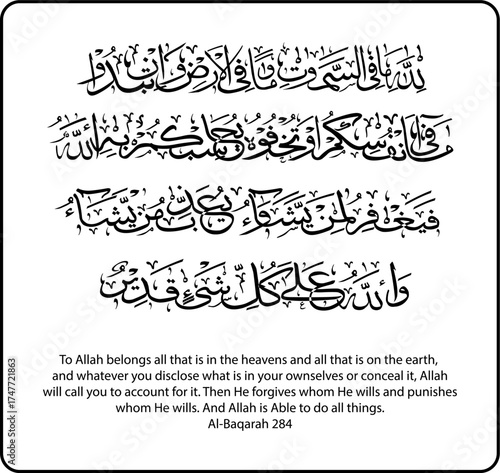 لِلَّهِ مَا فِي السَّمَوَتِ وَمَا فِي الْأَرْضِ وَإِن تُبْدُوا
مَا فِي أَنفُسِكُمْ أَوْ تُخْفُوهُ يُحَاسِبْكُم بِهِ اللَّهُ
فَيَغْفِرُ لِمَن يَشَاءُ وَيُعَذِّبُ مَن يَشَاءُ
وَاللَّهُ عَلَى كُلِّ شَيْءٍ قَدِيرٌ
To Allah belongs all that is in the heavens and all that is on the earth,
and whatever you disclose what is in your ownselves or conceal it, Allah
will call you to account for it. Then He forgives whom He wills and punishes
whom He wills. And Allah is Able to do all things.
Al-Baqarah 284
Adobe Stock | #1747721863
Adobe Stock